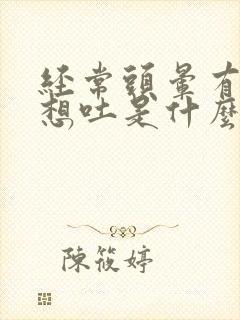 經常頭暈有
想吐是什麼
陳筱婷